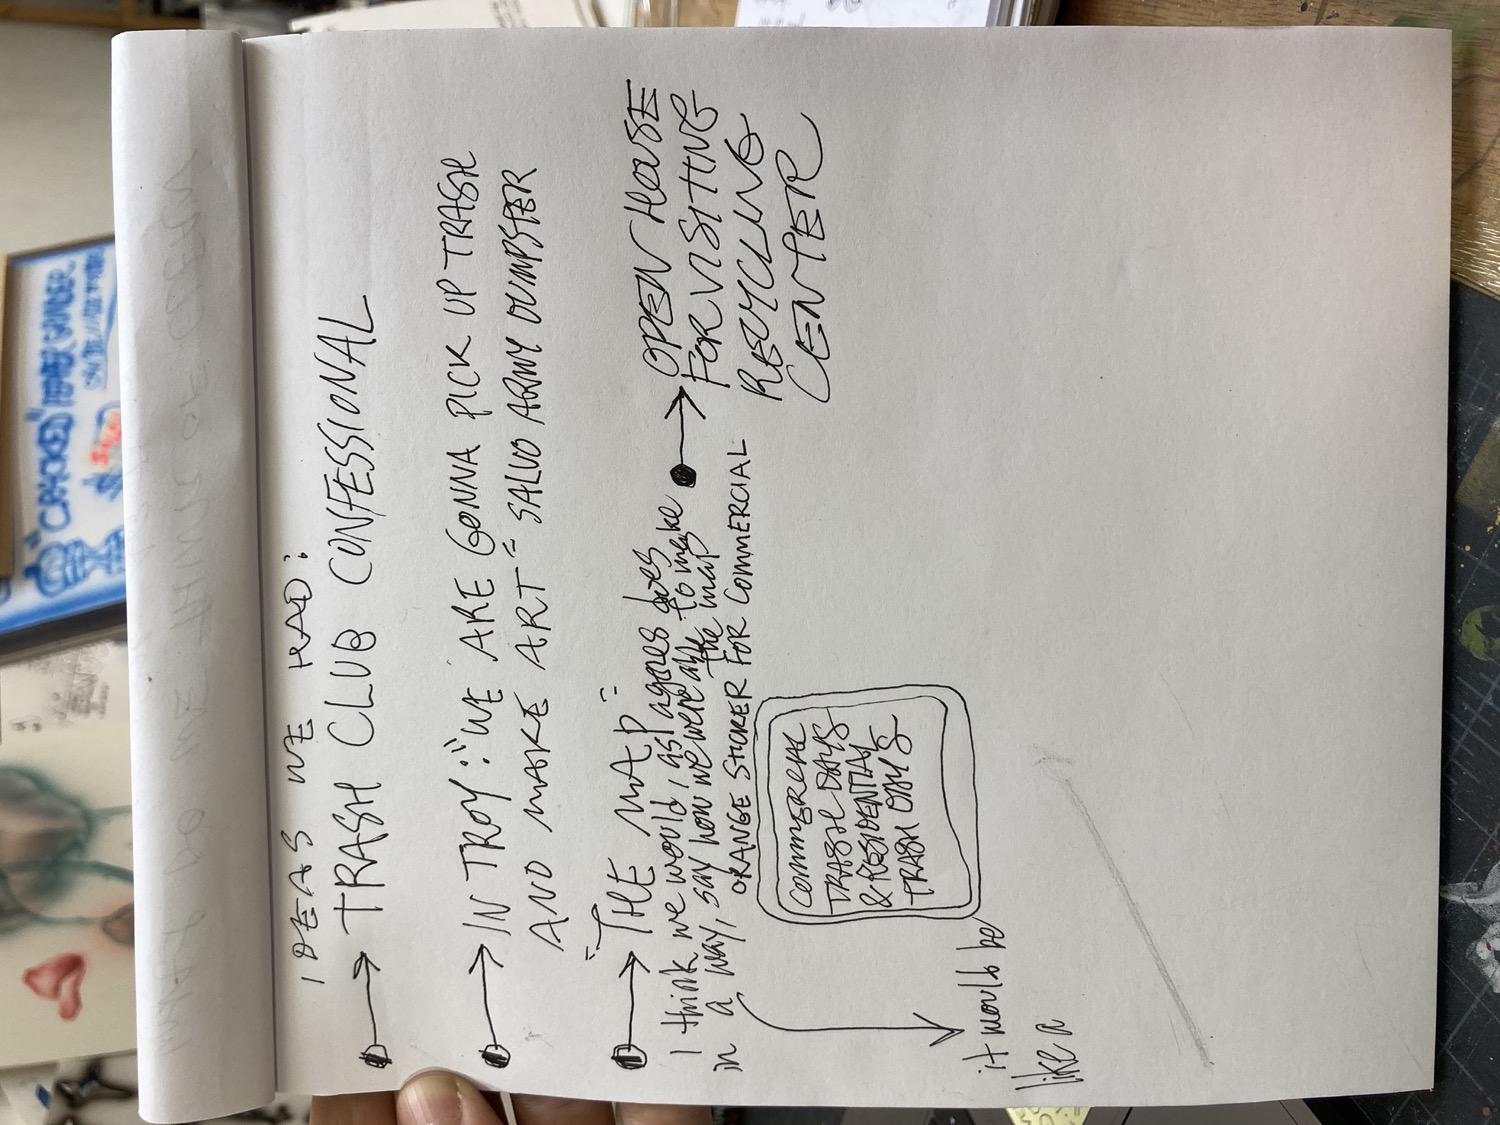 IDEAS WE HAD:
TRASH CLUB CONFESSIONAL
IN TROY: "WE ARE GONNA PICK UP TRASH
AND MAKE ART" SALVO ARMY DUMPSTER
"THE MAP"
I think we would, as agnes does
in a way, say how we were able to make
the map
ORANGE STICKER FOR COMMERCIAL
OPEN HOUSE
FOR VISITING
RECYCLING
CENTER
COMMERCIAL
TRASH DAYS
& RESIDENTIAL
TRASH DAYS
it would be
like a
"CRACKED"